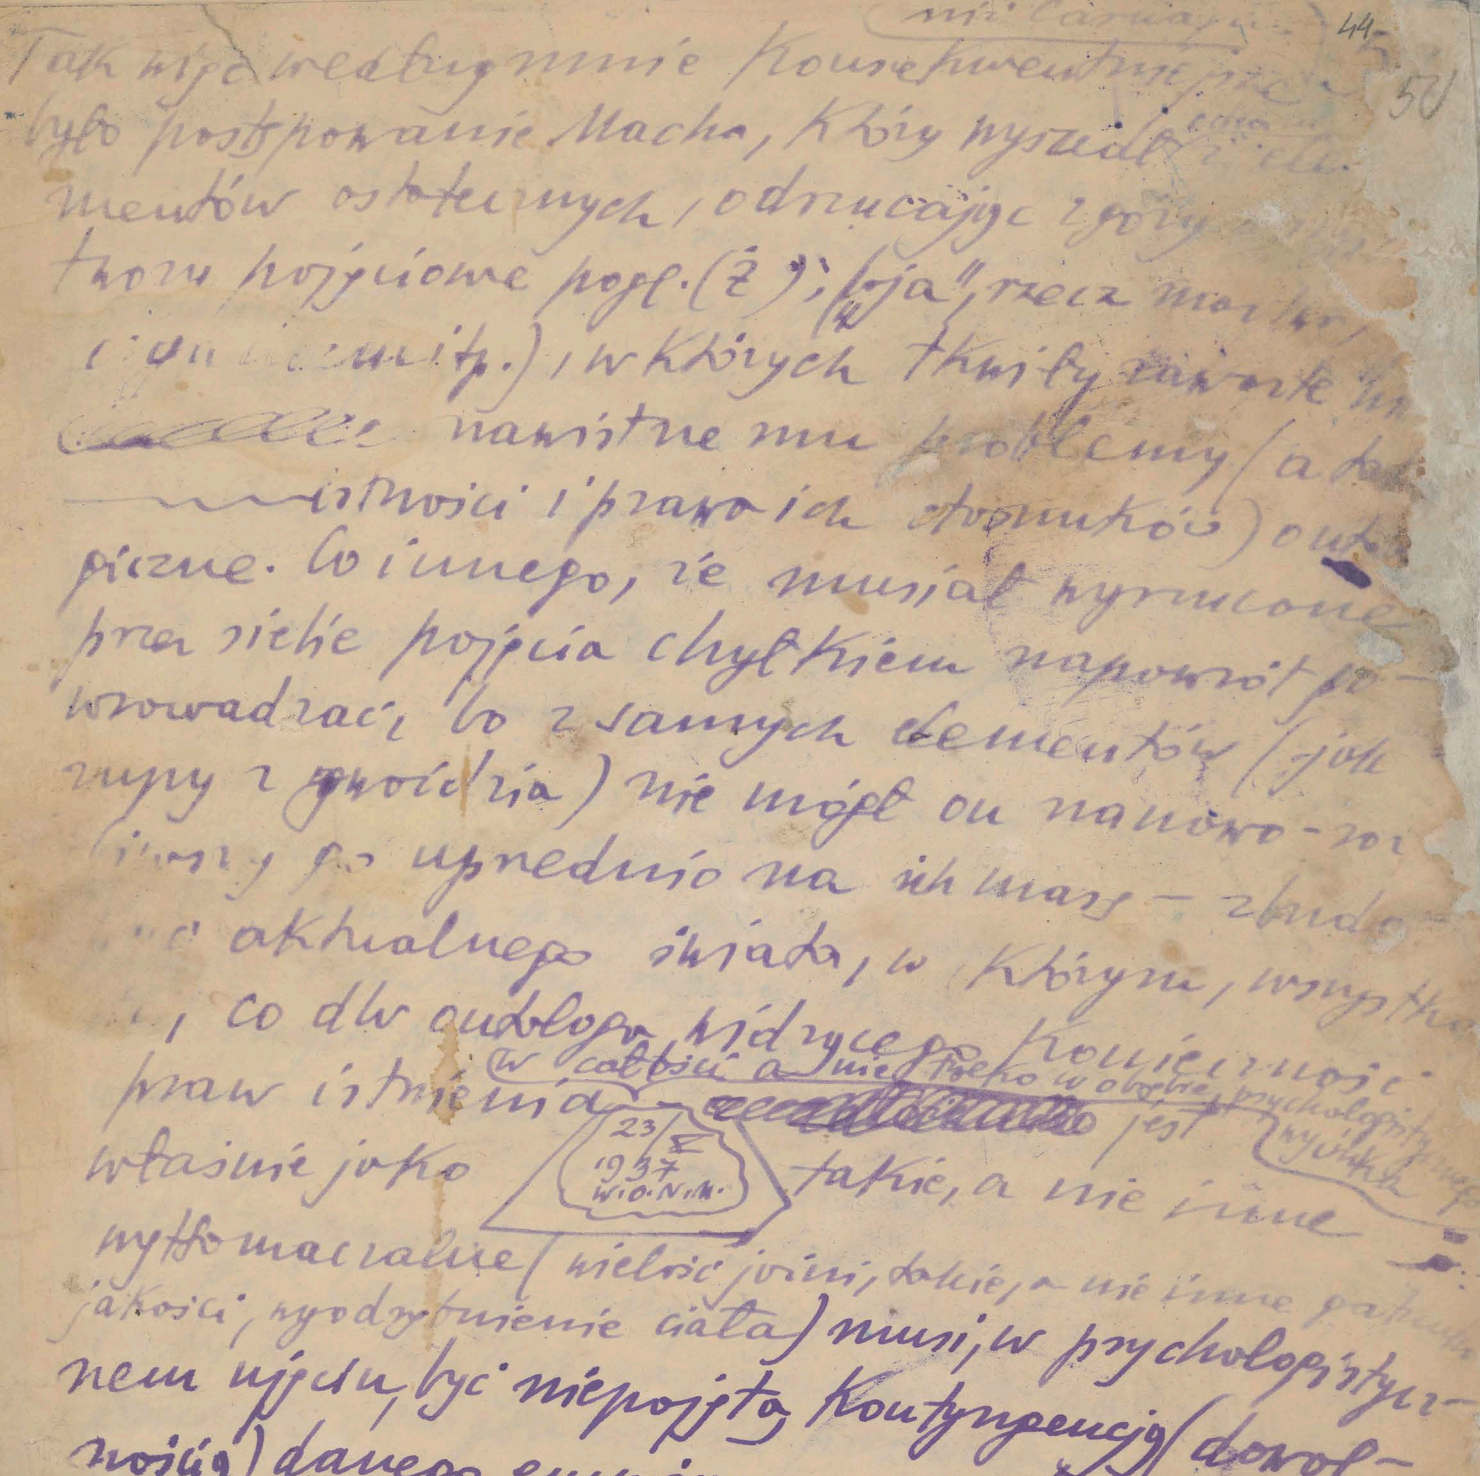 niż Carnapa
44
50
Tak więc według mnie konsekwentniejsze
było postępowanie Macha, który wyszedł z ele-
mentów ostatecznych, odrzucając z góry
twory pojęciowe pogl. (ż); „ja", rzecz martwa,
itp.), w których tkwiły zawarte
nawistne mu problemy (a
istności i prawa ich stosunków) onto-
giczne. Co innego, że musiał wyrzucone
przez siebie pojęcia chyłkiem napowrót po-
wrowadzać, bo z samych elementów (jak
zupy z gwoździa) nie mógł on nanowo –
go uprednio na ich masę – zbudo-
aktualnego świata, w którym, wszystko
, co dla ontologa widzącego konieczność
w całości a nie tylko w obrębie psychologistycznego
wycinka
praw istnienia jest
23/X
1937
W.O.N.M.
właśnie jako takie, a nie inne
wytłomaczalne (wielość jaźni, takie, a nie inne
jakości, wyodrębnienie ciała) musi, w psychologistycz-
nem ujęciu, być niepojętą kontyngencją (dowol-
nością) danego